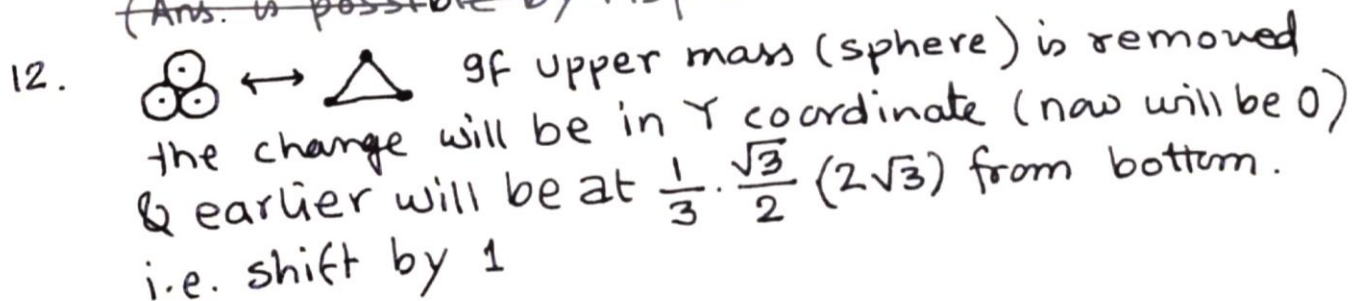 (Ans. is possible by
12. ↔ If upper mass (sphere) is removed
the change will be in Y coordinate (now will be 0)
& earlier will be at 1/3 · √3/2 (2√3) from bottom.
i.e. shift by 1